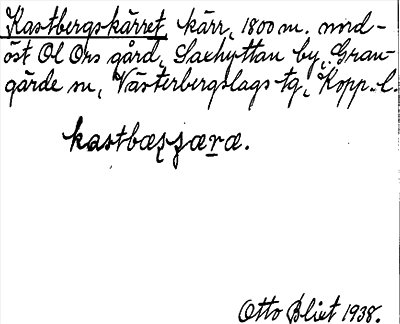 Kastbergskärret kärr, 1800 m. nord-
öst Ol Ors gård, Saxhyttan by, Gran-
gärde sn, Västerbergslags tg, Kopp. l.
kastbæʂʂæræ.
Otto Blixt 1938.